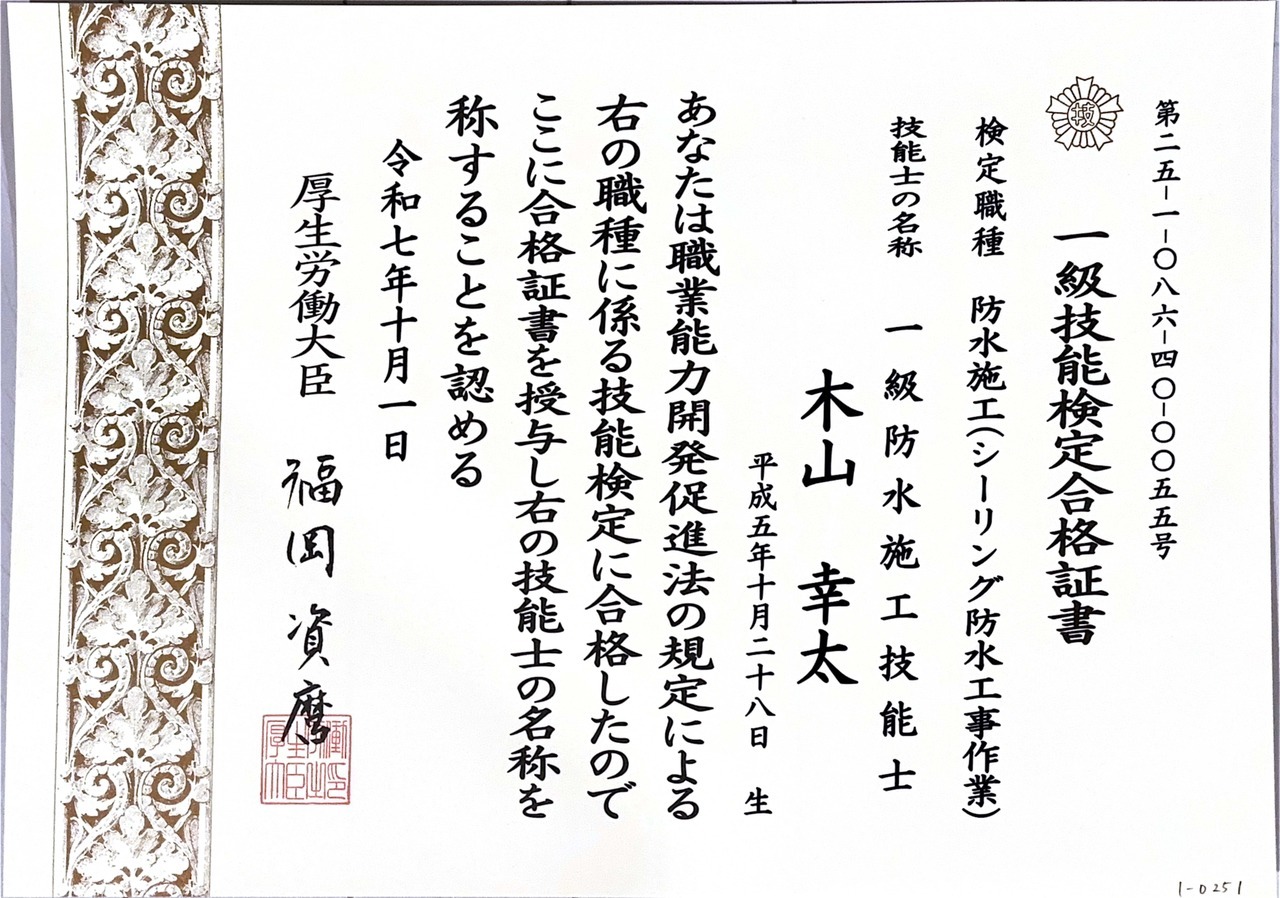 第二五－一－〇八六－四〇－〇〇五五号
技
一級技能検定合格証書
検定職種　防水施工(シーリング防水工事作業)
技能士の名称　一級防水施工技能士
木山　幸太
平成五年十月二十八日　生
あなたは職業能力開発促進法の規定による
右の職種に係る技能検定に合格したので
ここに合格証書を授与し右の技能士の名称を
称することを認める
令和七年十月一日
厚生労働大臣　福岡資麿
1-0251